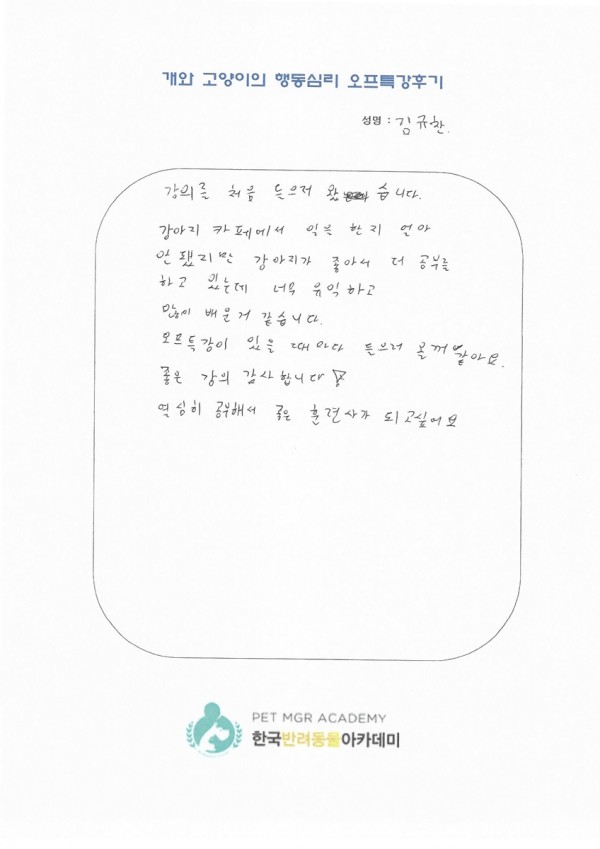 개와 고양이의 행동심리 오프특강후기
성명 : 김규찬.
강의를 처음 들으러 왔습니다.
강아지 카페에서 일을 한지 얼마
안 됐지만 강아지가 좋아서 더 공부를
하고 있는데 너무 유익하고
많이 배운거 같습니다.
오프특강이 있을 때마다 들으러 올꺼 같아요.
좋은 강의 감사합니다
열심히 공부해서 좋은 훈련사가 되고싶어요
PET MGR ACADEMY
한국반려동물아카데미